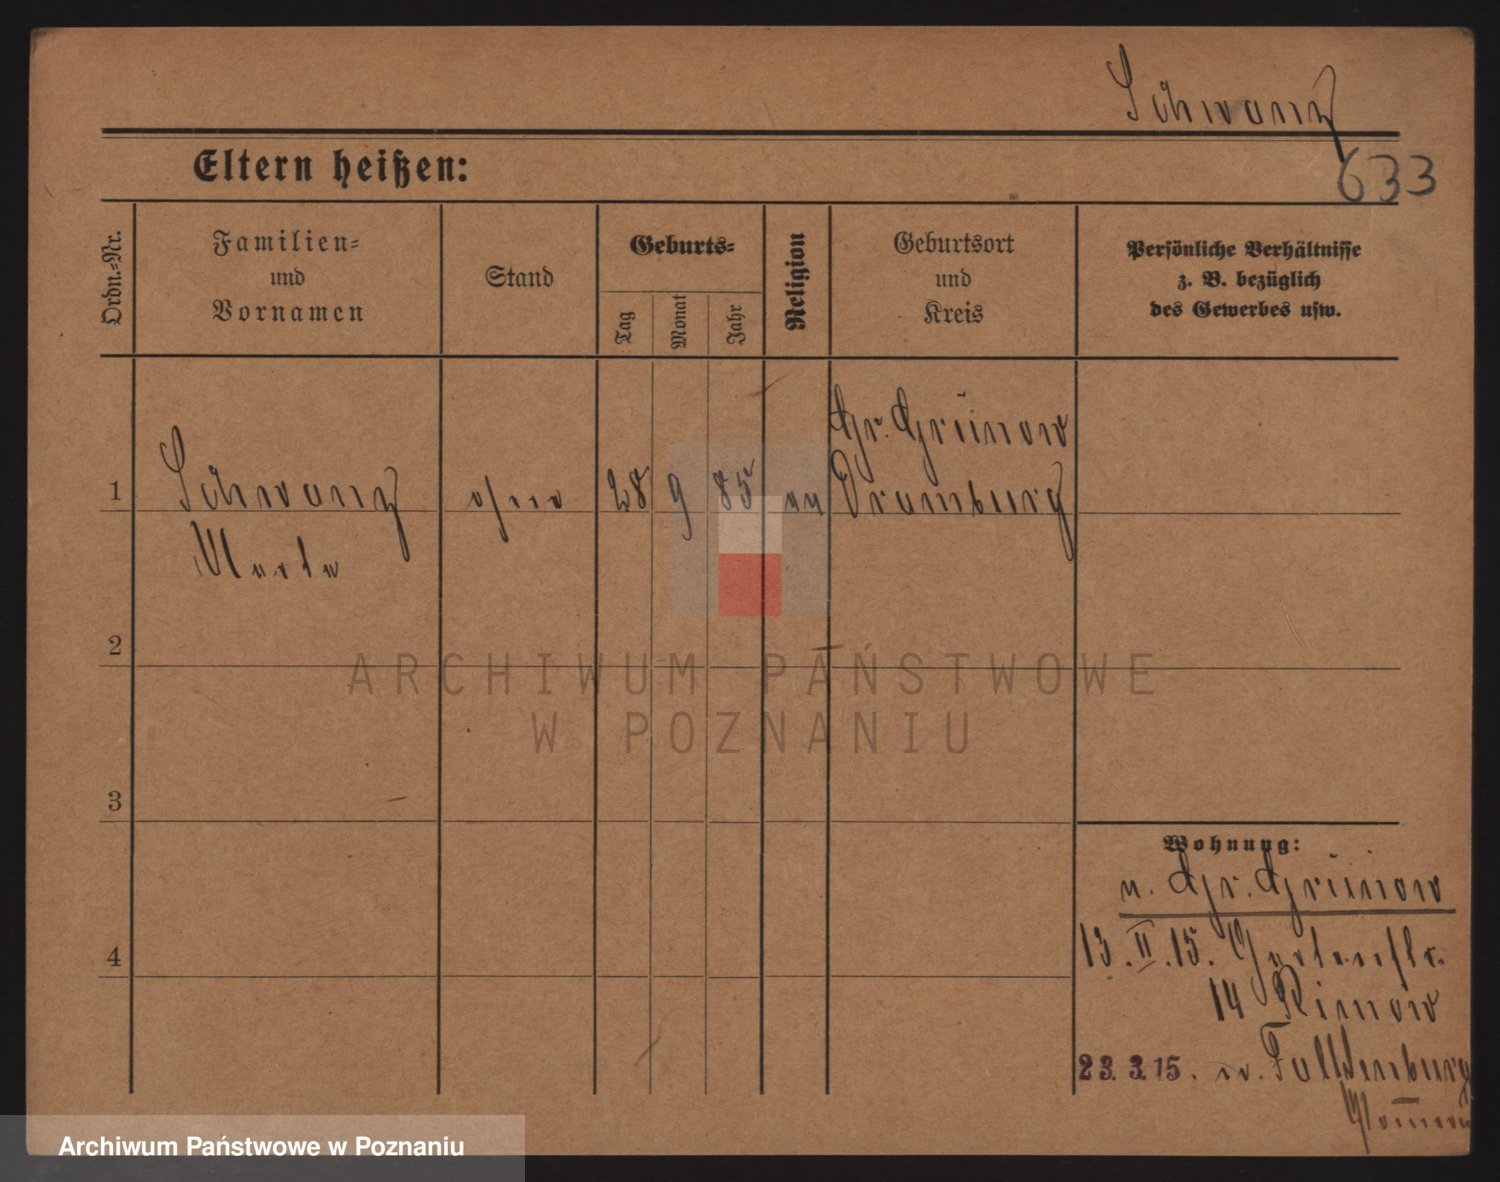 Schwanz
633
Eltern heißen:
Ordn.-Nr.
Familien-
und
Vornamen
Stand
Geburts-
Tag
Monat
Jahr
Religion
Geburtsort
und
Kreis
Persönliche Verhältnisse
z. B. bezüglich
des Gewerbes usw.
Gr. Grünow
1 Schwanz ohne 28 9 85 Dramburg
2
3
4
ARCHIWUM PAŃSTWOWE
W POZNANIU
Wohnung:
n. Gr. Grünow
13.II.15. Gartenstr.
14
23.3.15. Falkenburg
Archiwum Państwowe w Poznaniu